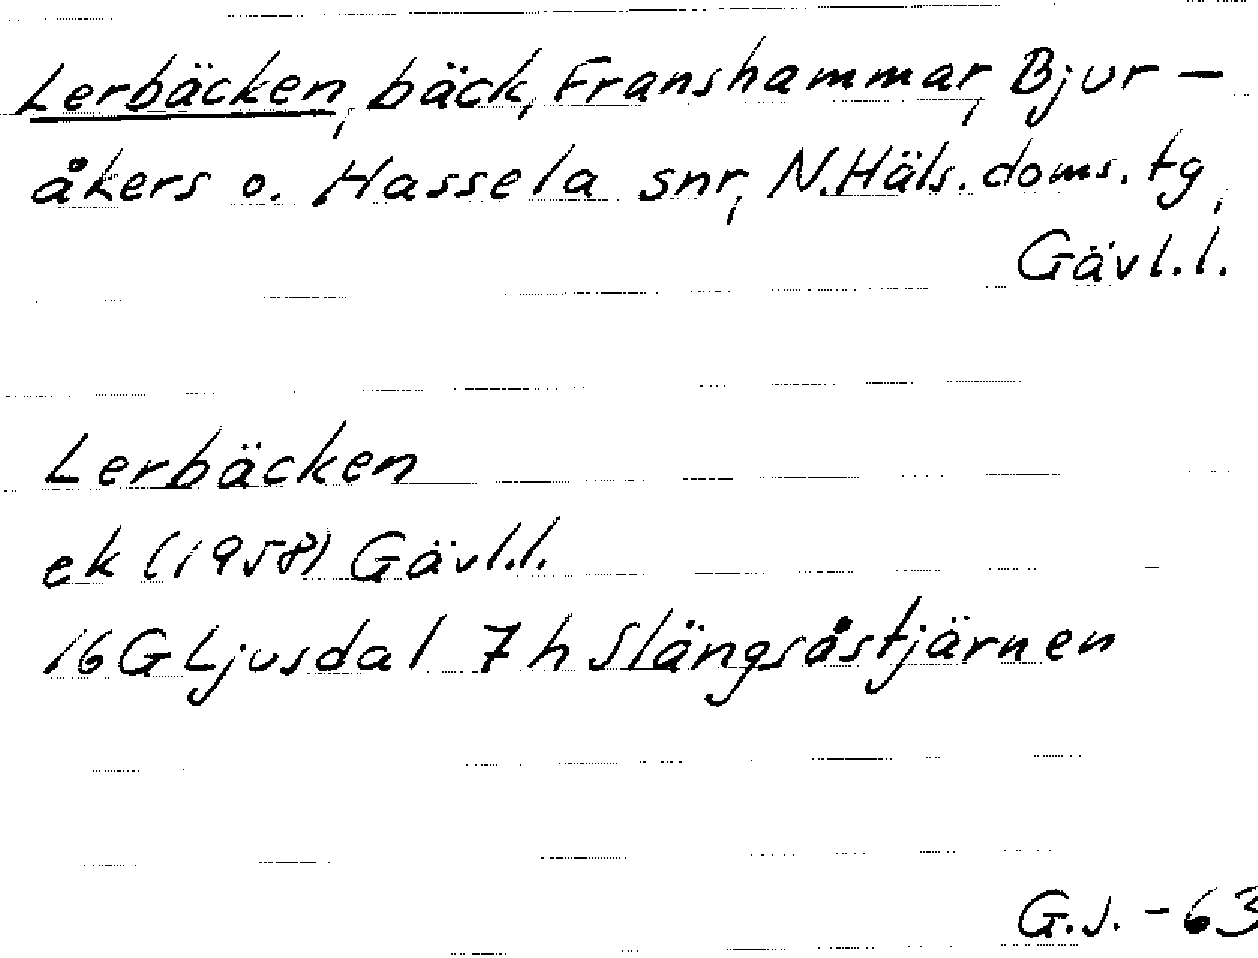 Lerbäcken, bäck, Franshammar, Bjur-
åkers o. Hassela snr, N.Häls.doms.tg,
Gävl.l.
Lerbäcken
ek (1958) Gävl.l.
16G Ljusdal 7h Slängsåstjärnen
G.J. -63